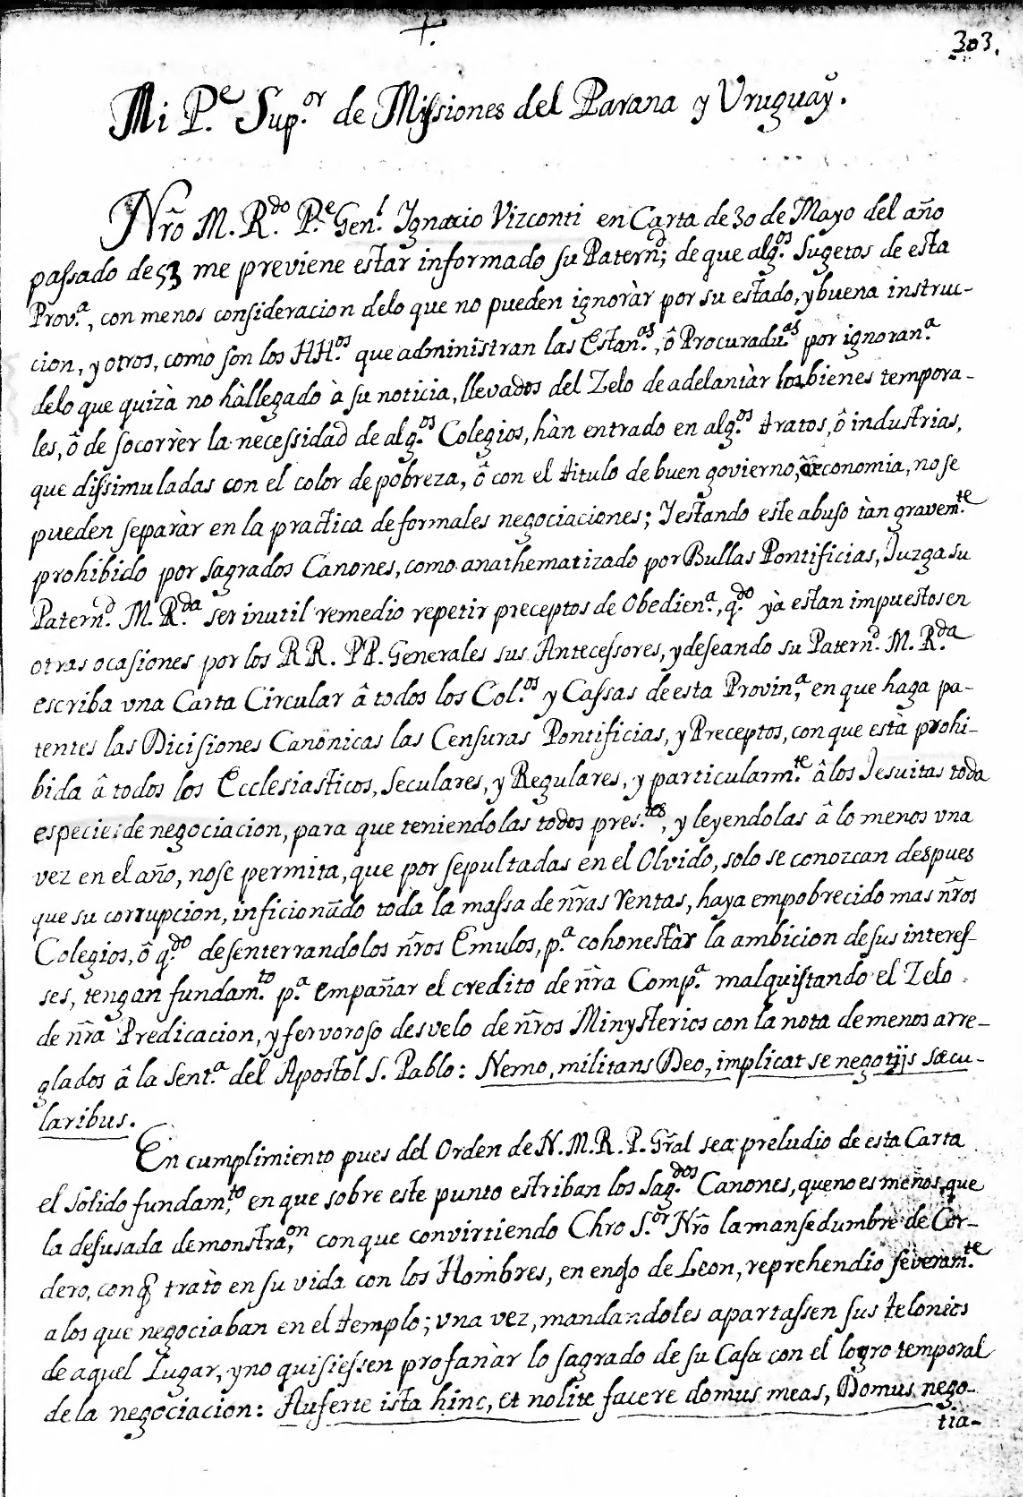 +.
303.
Mi P.e Sup.or de Missiones del Parana y Uruguay.
Nr̃o M. R.do P.e Gen.l Ygnacio Vizconti en Carta de 30 de Mayo del año
passado de 53 me previene estar informado su Patern.d; de que alg.os Sugetos de esta
Prov.a, con menos consideracion delo que no pueden ignoràr por su estado, y buena instruc-
cion, y otros, como son los HH.os que administran las Estan.as, ô Procuradu.as por ignoran.a
delo que quizà no hàllegado à su noticia, llevados del Zelo de adelantàr los bienes tempora-
les, ô de socorrèr la necessidad de alg.os Colegios, hàn entrado en alg.os tratos, ô industrias,
que dissimuladas con el color de pobreza, ô con el titulo de buen govierno, œconomia, no se
pueden separàr en la practica de formales negociaciones; Yestando este abuso tàn gravem.te
prohibido por sagrados Canones, como anathematizado por Bullas Pontificias, Juzga su
Patern.d M. R.da ser inutil remedio repetir preceptos de Obedien.a, q.do yà estan impuestos en
otras ocasiones por los RR. PP. Generales sus Antecessores, y deseando su Patern.d M. R.da
escriba vna Carta Circular â todos los Col.os y Cassas de esta Provin.a, en que haga pa-
tentes las Dicisiones Canonicas las Censuras Pontificias, y Preceptos, con que està prohi-
bida â todos los Ecclesiasticos, seculares, y Regulares, y particularm.te â los Jesuitas toda
especie de negociacion, para que teniendolas todos pres.tes, y leyendolas â lo menos vna
vez en el año, no se permita, que por sepultadas en el Olvido, solo se conozcan despues
que su corrupcion, inficionando toda la massa de nr̃as Rentas, haya empobrecido mas nr̃os
Colegios, ô q.do desenterrandolos nr̃os Emulos, p.a cohonestàr la ambicion de sus interes-
ses, tengan fundam.to p.a empañar el credito de nr̃a Comp.a malquistando el Zelo
de nr̃a Predicacion, y fervoroso desvelo de nr̃os Minysterios con la nota de menos arre-
glados â la Sent.a del Apostol S. Pablo: Nemo, militans Deo, implicat se negotijs sæcu-
laribus.
En cumplimiento pues del Orden de N. M. R. P. Gr̃al sea preludio de esta Carta
el solido fundam.to, en que sobre este punto estriban los Sag.dos Canones, que no es menos, que
la desusada demonstra.on, con que convirtiendo Chro S.or Nr̃o la mansedumbre de Cor-
dero, con q̃ tratò en su vida con los Hombres, en enojo de Leon, reprehendio severam.te
a los que negociaban en el templo; vna vez, mandandoles apartassen sus telonios
de aquel Lugar, y no quisiessen profanàr lo sagrado de su Casa con el logro temporal
de la negociacion: Auferte ista hinc, et nolite facere domus meas, Domus nego-
tia-